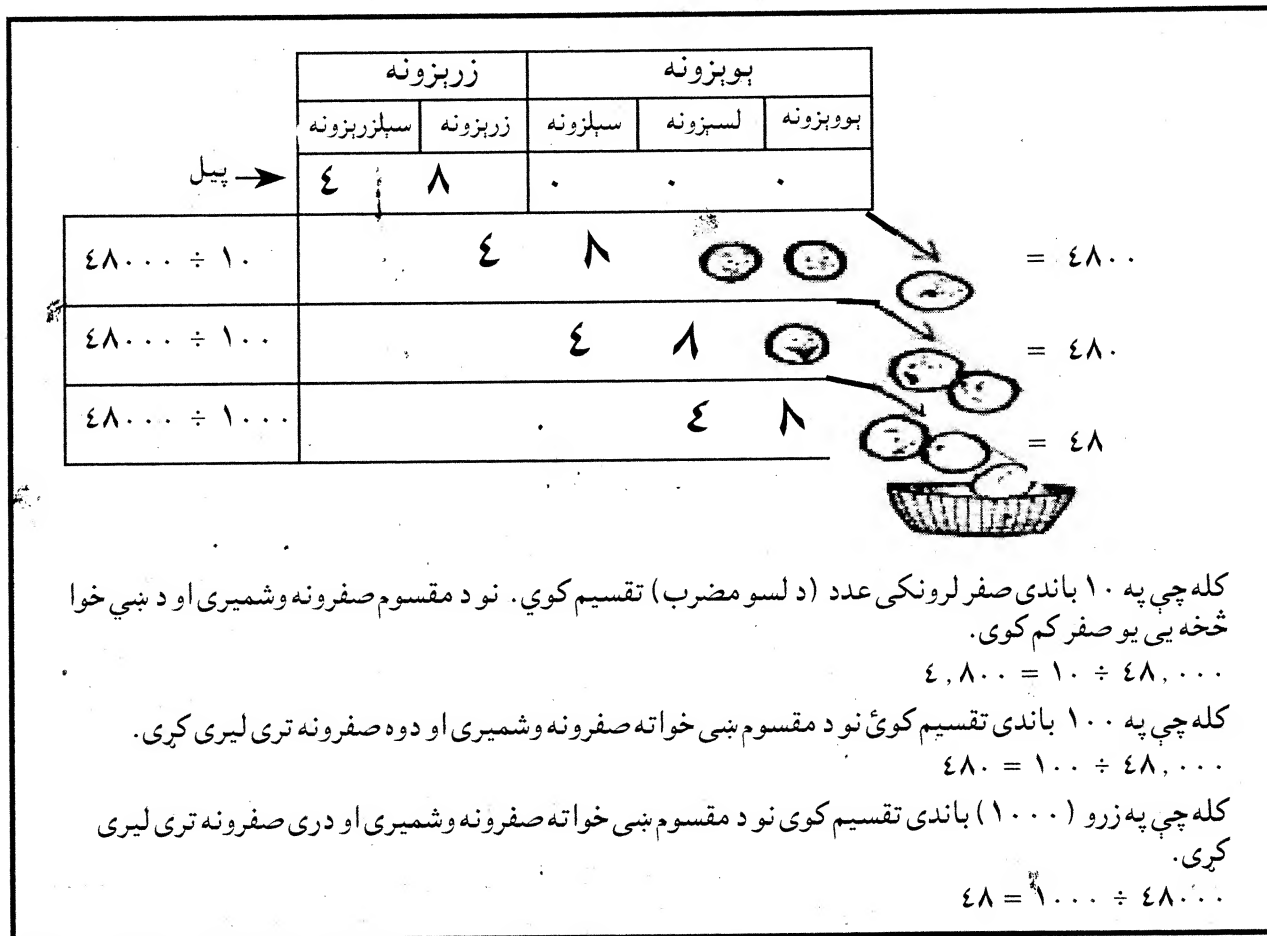 یویزونه زریزونه
یوویزونه لسیزونه سیلزونه زریزونه سیلزریزونه
پیل ٤ ٨ ٠ ٠ ٠
٤٨٠٠٠ ÷ ١٠ ٤ ٨ = ٤٨٠٠
٤٨٠٠٠ ÷ ١٠٠ ٤ ٨ = ٤٨٠
٤٨٠٠٠ ÷ ١٠٠٠ ٤ ٨ = ٤٨
کله چې په ١٠ باندی صفر لرونکی عدد (د لسو مضرب) تقسیم کوي. نو د مقسوم صفرونه وشمیری او د ښي خوا
څخه یی یو صفر کم کوی.
٤,٨٠٠ = ١٠ ÷ ٤٨,٠٠٠
کله چې په ١٠٠ باندی تقسیم کوئ نو د مقسوم ښی خوا ته صفرونه وشمیری او دوه صفرونه تری لیری کړی.
٤٨٠ = ١٠٠ ÷ ٤٨,٠٠٠
کله چې په زرو (١٠٠٠) باندی تقسیم کوی نو د مقسوم ښی خوا ته صفرونه وشمیری او دری صفرونه تری لیری
کړی.
٤٨ = ١٠٠٠ ÷ ٤٨٠٠٠